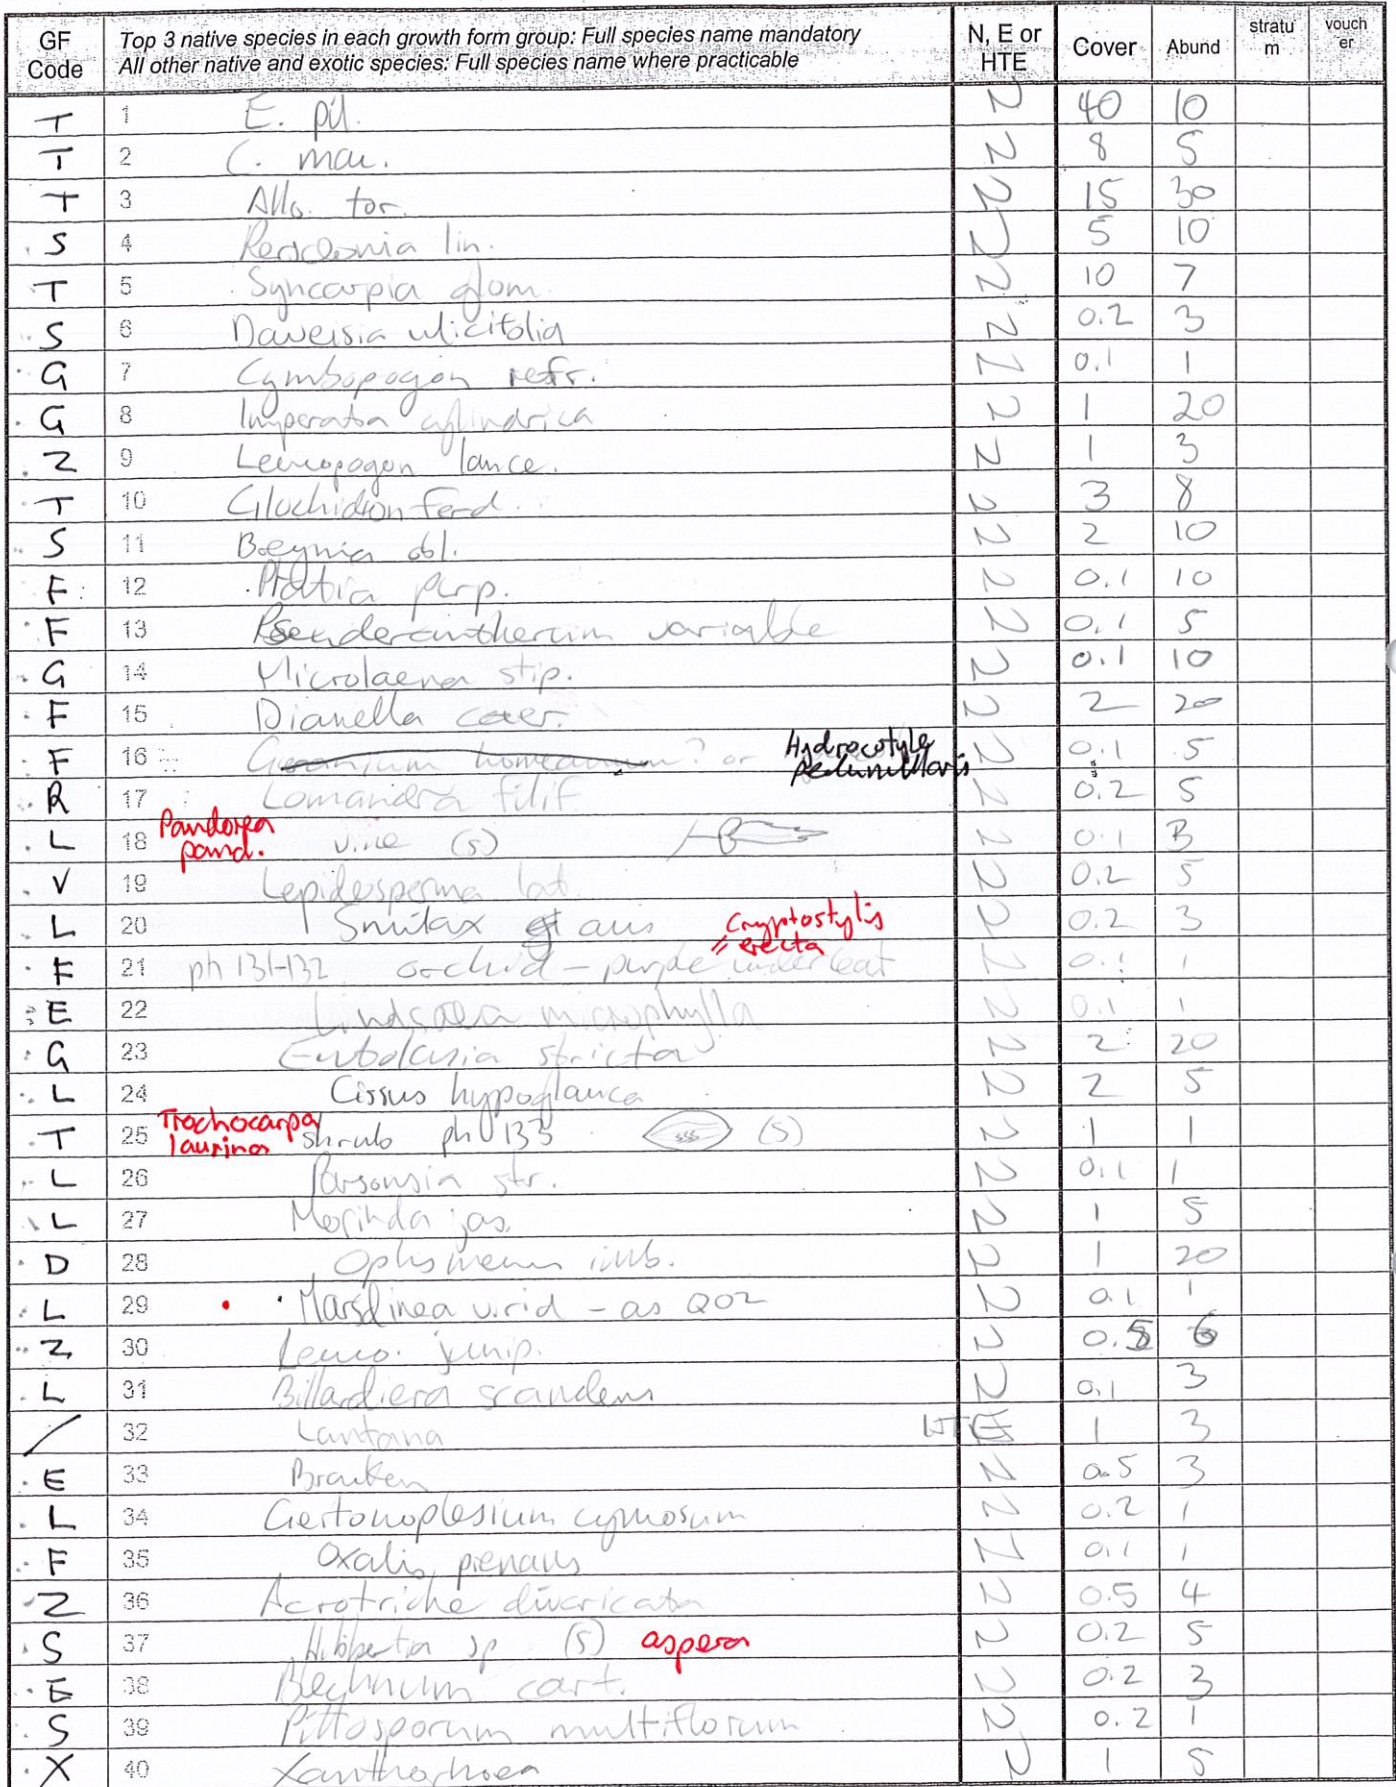 GF Code Top 3 native species in each growth form group: Full species name mandatory All other native and exotic species: Full species name where practicable N, E or HTE Cover Abund stratum voucher
T 1 E. pil. N 40 10
T 2 C. mac. N 8 5
T 3 Allo. tor. N 15 30
S 4 Persoonia lin. N 5 10
T 5 Syncarpia glom. N 10 7
S 6 Daveisia ulicifolia N 0.2 3
G 7 Cymbopogon refr. N 0.1 1
G 8 Imperata cylindrica N 1 20
Z 9 Leucopogon lance. N 1 3
T 10 Glochidion ferd. N 3 8
S 11 Breynia obl. N 2 10
F 12 Pratia purp. N 0.1 10
F 13 Pseuderantherum variable N 0.1 5
G 14 Microlaena stip. N 0.1 10
F 15 Dianella caer. N 2 20
F 16 Geranium homeanum? or Hydrocotyle pedunillaris N 0.1 5
R 17 Lomandra filif N 0.2 5
L 18 Pandorea pand. vine (s) N 0.1 3
V 19 Lepidosperma lat. N 0.2 5
L 20 Smilax aus N 0.2 3
Cryptostylis erecta
F 21 ph 131-132 orchid - purple under leaf N 0.1 1
E 22 Lindsaea microphylla N 0.1 1
G 23 Entolasia stricta N 2 20
L 24 Cissus hypoglauca N 2 5
T 25 Trochocarpa laurina shrub ph 133 (s) N 1 1
L 26 Parsonsia str. N 0.1 1
L 27 Morinda jas. N 1 5
D 28 Oplismenu imb. N 1 20
L 29 Marsdinea virid - as Q02 N 0.1 1
Z 30 Leuco. junip. N 0.5 6
L 31 Billardiera scandens N 0.1 3
/ 32 Lantana HTE 1 3
E 33 Bracken N 0.5 3
L 34 Geitonoplesium cymosum N 0.2 1
F 35 Oxalis N 0.1 1
Z 36 Acrotriche divaricata N 0.5 4
S 37 Hibbertia sp (s) aspera N 0.2 5
E 38 Blechnum cart. N 0.2 3
S 39 Pittosporum multiflorum N 0.2 1
X 40 Xanthorhoea N 1 5